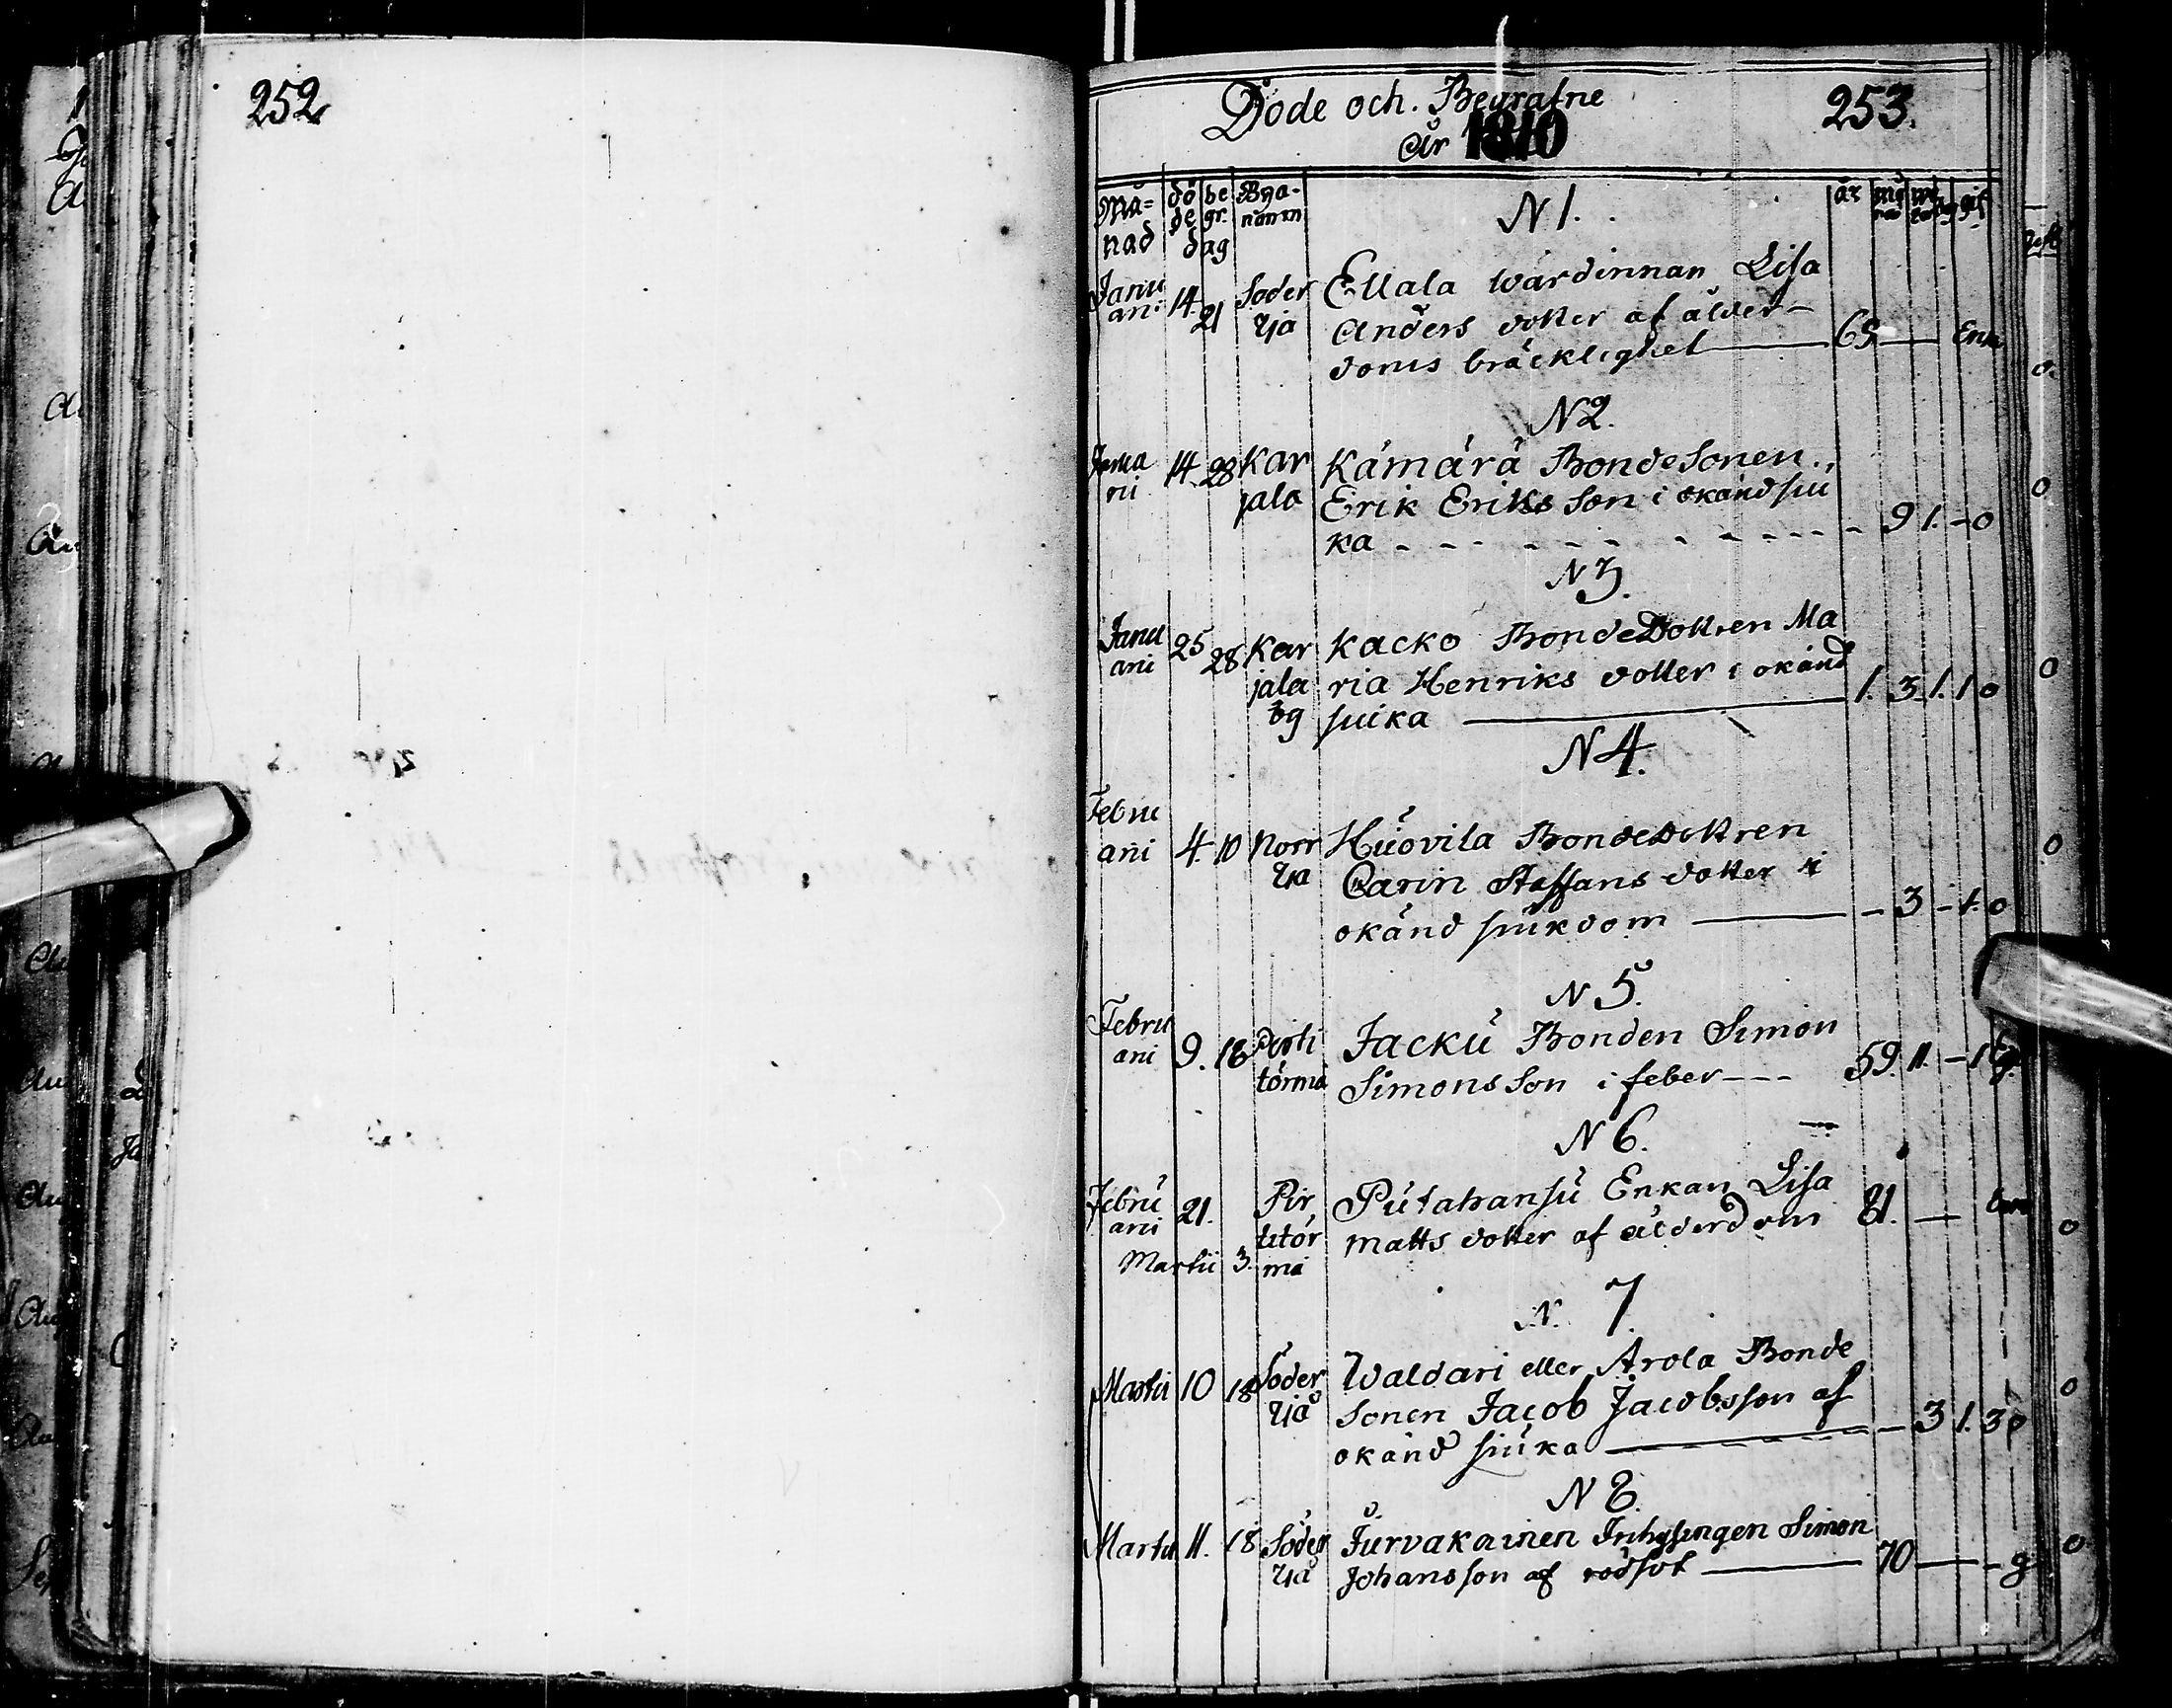 252
Döde och. Begrafne
253.
År 1810
Må=
nad
dö
de
be
gr.
dag
Bya-
namn
N 1.
år
Janu
ari
14.
21
Söder
bÿa
Ellala wärdinnan Lisa
Anders dotter af ålder-
doms bräcklighet
Enk
N 2.
Janua
rii
14.
28
Kar
jala
Kämärä BondeSonen.,
Erik Eriks Son i okänd siu
ka - - - - - - - 9 1. - 0
N 3.
Janu
ari
25
28
Kar
jala
Kacko BondeDottren Ma
ria Henriks dotter i okänd
siuka 1. 3. 1. 1 0
N 4.
Febru
ari
4.
10
Norr
Huovila BondeDottren
Carin Staffans dotter i
okänd siukdom - 3 - 1. 0
N 5.
Febru
ari
9.
18
Jacku Bonden Simon
Simons Son i feber --- 59. 11. - 1 g
N 6.
Febru
ari
21.
Martii 3.
Pir
titör
mä
Putahansu Enkan Lisa
Matts dotter af ålderdom 81. —
N. 7.
Martii
10
18
Söder
Waldari eller Arola Bonde
sonen Jacob Jacobsson af
okänd siuka - 3 1. 3 0
N 8.
Martii
11.
18
Söder
Jurvakainen Inhysingen Simon
Johansson af rödsot 70 — - g